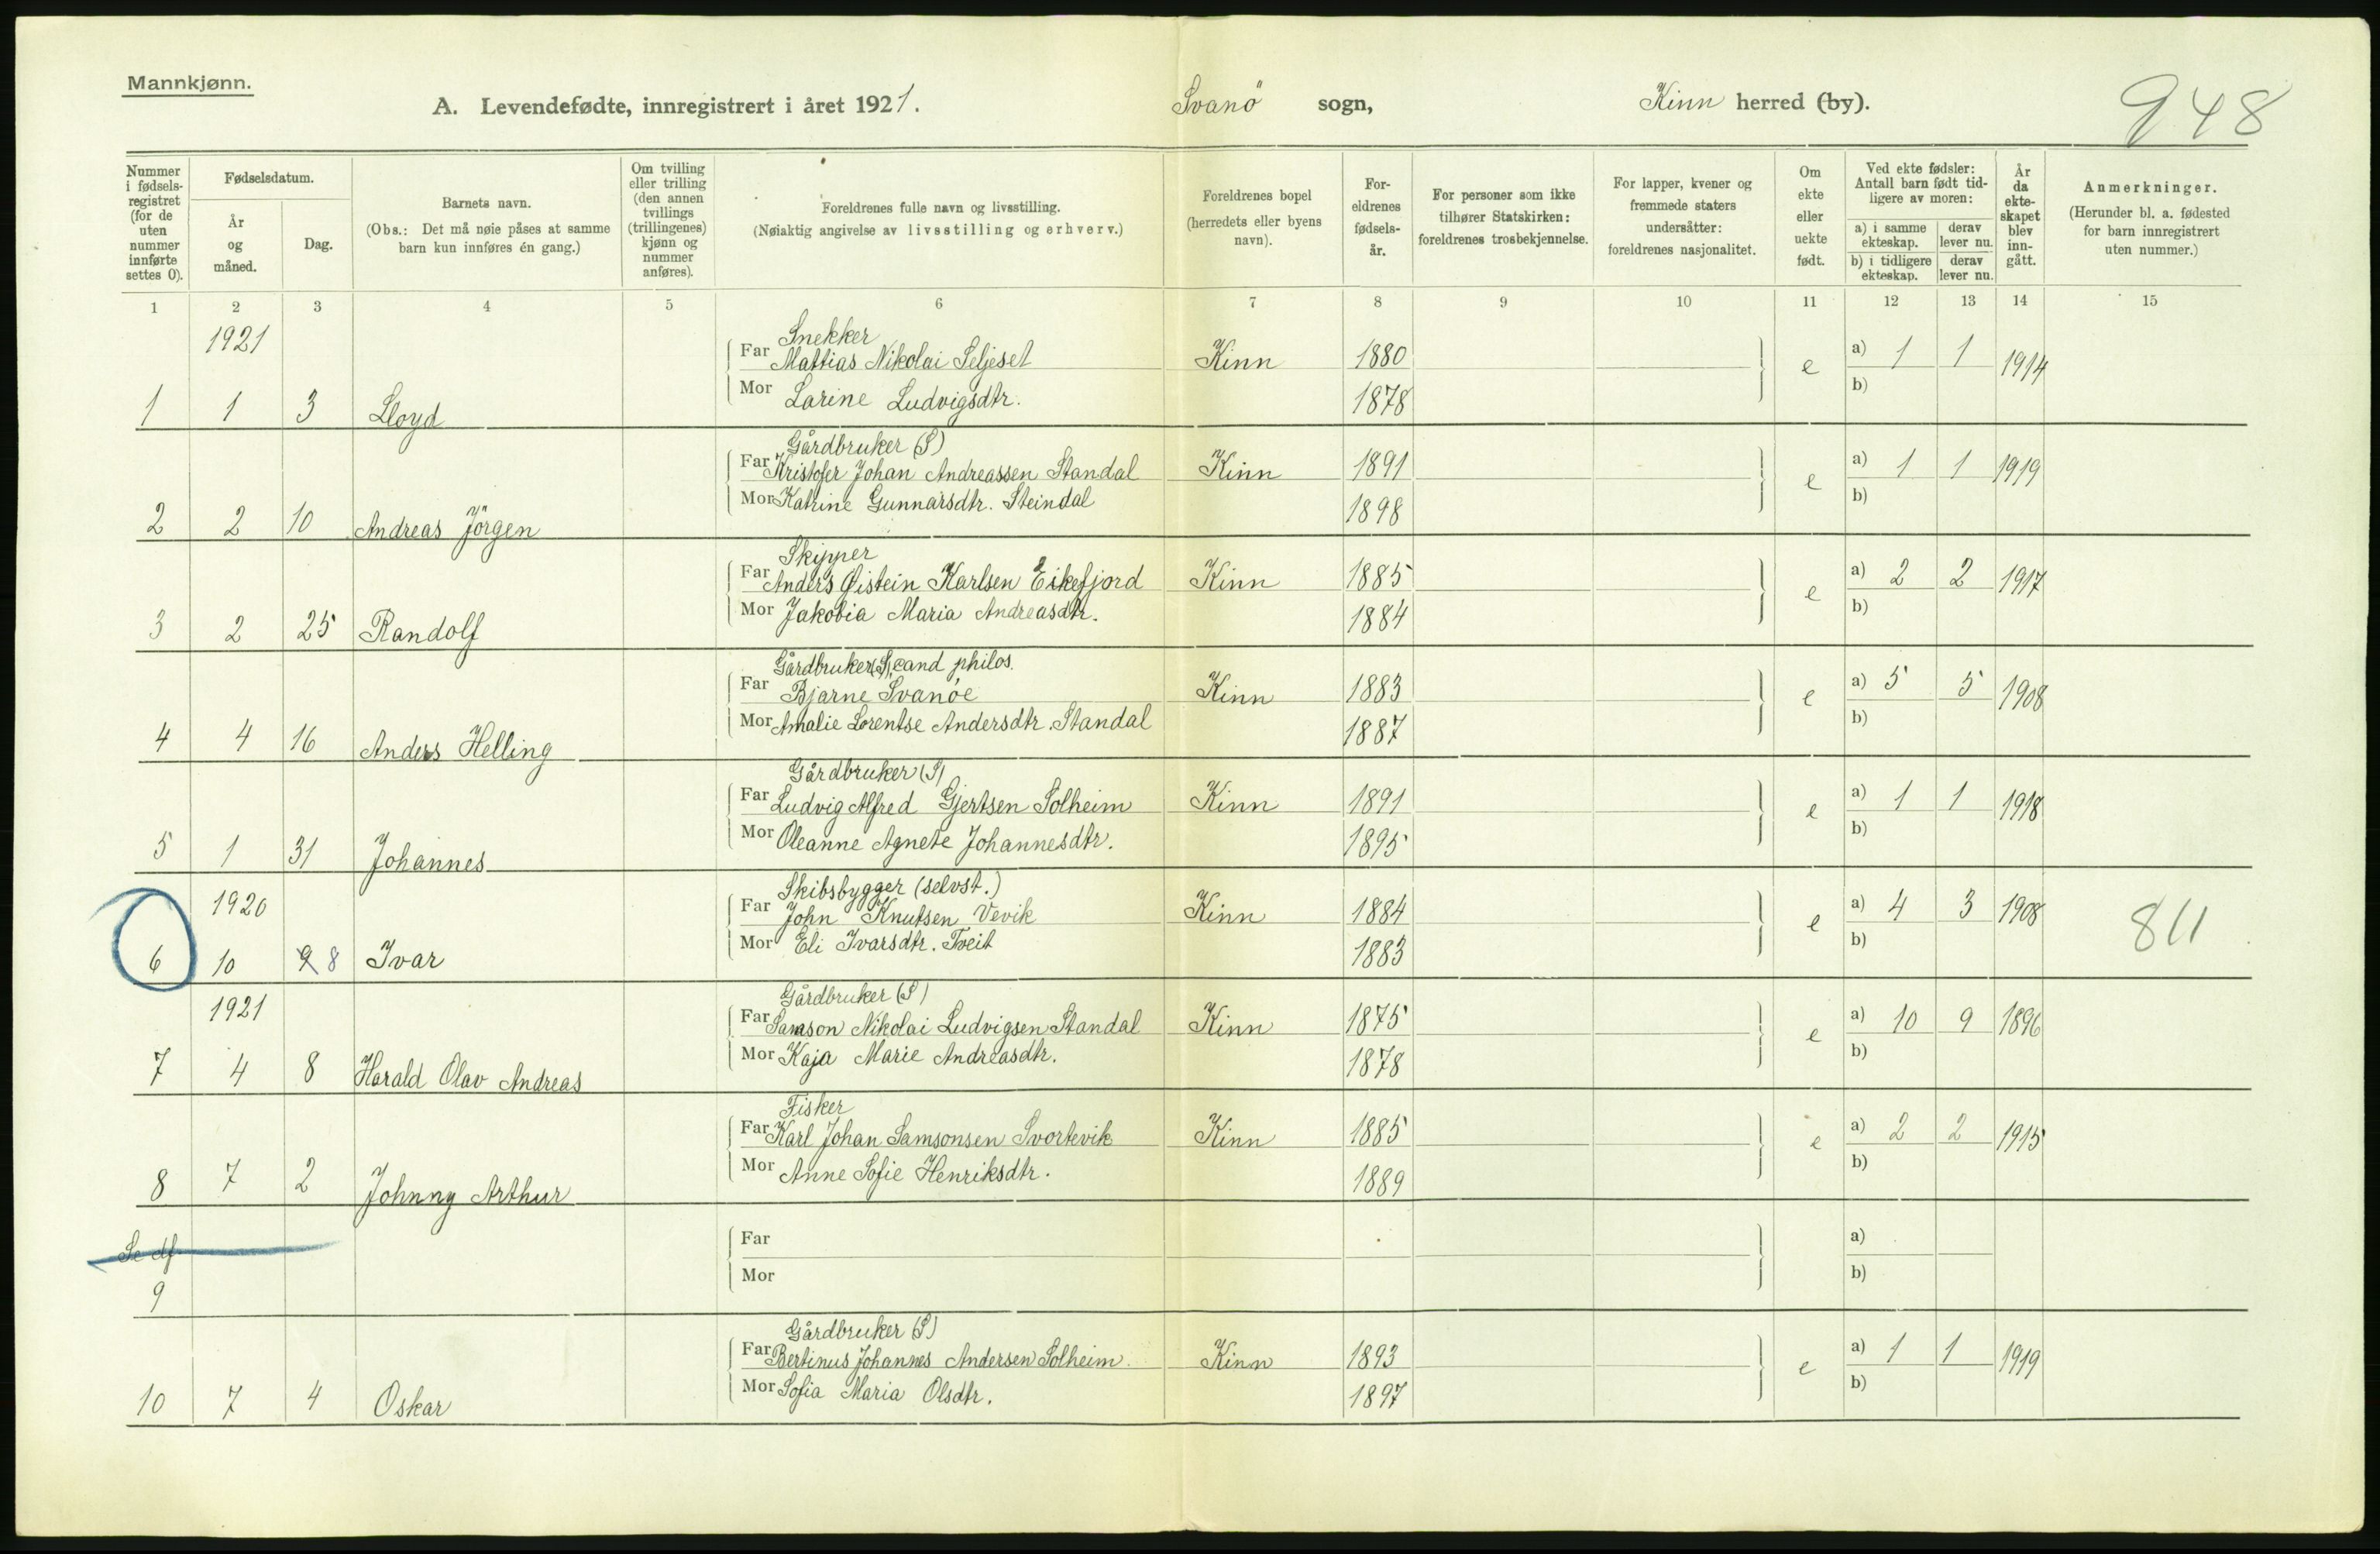 Mannkjønn.
A. Levendefødte, innregistrert i året 1921. Svanö sogn, Kinn herred (by). 948
Nummer i fødselsregistret (for de uten nummer innførte settes 0).
Fødselsdatum.
År og måned.
Dag.
Barnets navn.
(Obs.: Det må nøie påses at samme barn kun innføres én gang.)
Om tvilling eller trilling (den annen tvillings (trillingenes) kjønn og nummer anføres).
Foreldrenes fulle navn og livsstilling.
(Nøiaktig angivelse av livsstilling og erhverv.)
Foreldrenes bopel
(herredets eller byens navn).
Foreldrenes fødselsår.
For personer som ikke tilhører Statskirken: foreldrenes trosbekjennelse.
For lapper, kvener og fremmede staters undersåtter: foreldrenes nasjonalitet.
Om ekte eller uekte født.
Ved ekte fødsler: Antall barn født tidligere av moren:
a) i samme ekteskap. derav lever nu.
b) i tidligere ekteskap. derav lever nu.
År da ekteskapet blev inngått.
Anmerkninger.
(Herunder bl. a. fødested for barn innregistrert uten nummer.)
1 2 3 4 5 6 7 8 9 10 11 12 13 14 15
1921 Snekker
Far Mattias Nikolai Seljeset Kinn 1880 e a) 1 1 1914
1 1 3 Lloyd Mor Larine Ludvigsdtr. 1878 b)
Gårdbruker (S)
Far Kristofer Johan Andreassen Standal Kinn 1891 e a) 1 1 1919
2 2 10 Andreas Jörgen Mor Katrine Gunnarsdtr. Steindal 1898 b)
Skipper
Far Anders Øistein Karlsen Eikefjord Kinn 1885 e a) 2 2 1917
3 2 25 Randolf Mor Jakobia Maria Andreasdtr. 1884 b)
Gårdbruker (S), cand philos.
Far Bjarne Svanöe Kinn 1883 e a) 5 5 1908
4 4 16 Anders Helling Mor Amalie Lorentse Andersdtr. Standal 1887 b)
Gårdbruker (S)
Far Ludvig Alfred Gjertsen Solheim Kinn 1891 e a) 1 1 1918
5 1 31 Johannes Mor Oleanne Agnete Johannesdtr. 1895 b)
1920 Skibsbygger (selvst.)
Far John Knutsen Vevik Kinn 1884 e a) 4 3 1908 811
6 10 9 8 Ivar Mor Eli Ivarsdtr. Tveit 1883 b)
1921 Gårdbruker (S)
Far Samson Nikolai Ludvigsen Standal Kinn 1875 e a) 10 9 1896
7 4 8 Harald Olav Andreas Mor Kaja Marie Andreasdtr. 1878 b)
Fisker
Far Karl Johan Samsonsen Svortevik Kinn 1885 e a) 2 2 1915
8 7 2 Johnny Arthur Mor Anne Sofie Henriksdtr. 1889 b)
Se df. Far a)
9 Mor b)
Gårdbruker (S)
Far Bertinus Johannes Andersen Solheim Kinn 1893 e a) 1 1 1919
10 7 4 Oskar Mor Sofia Maria Olsdtr. 1897 b)